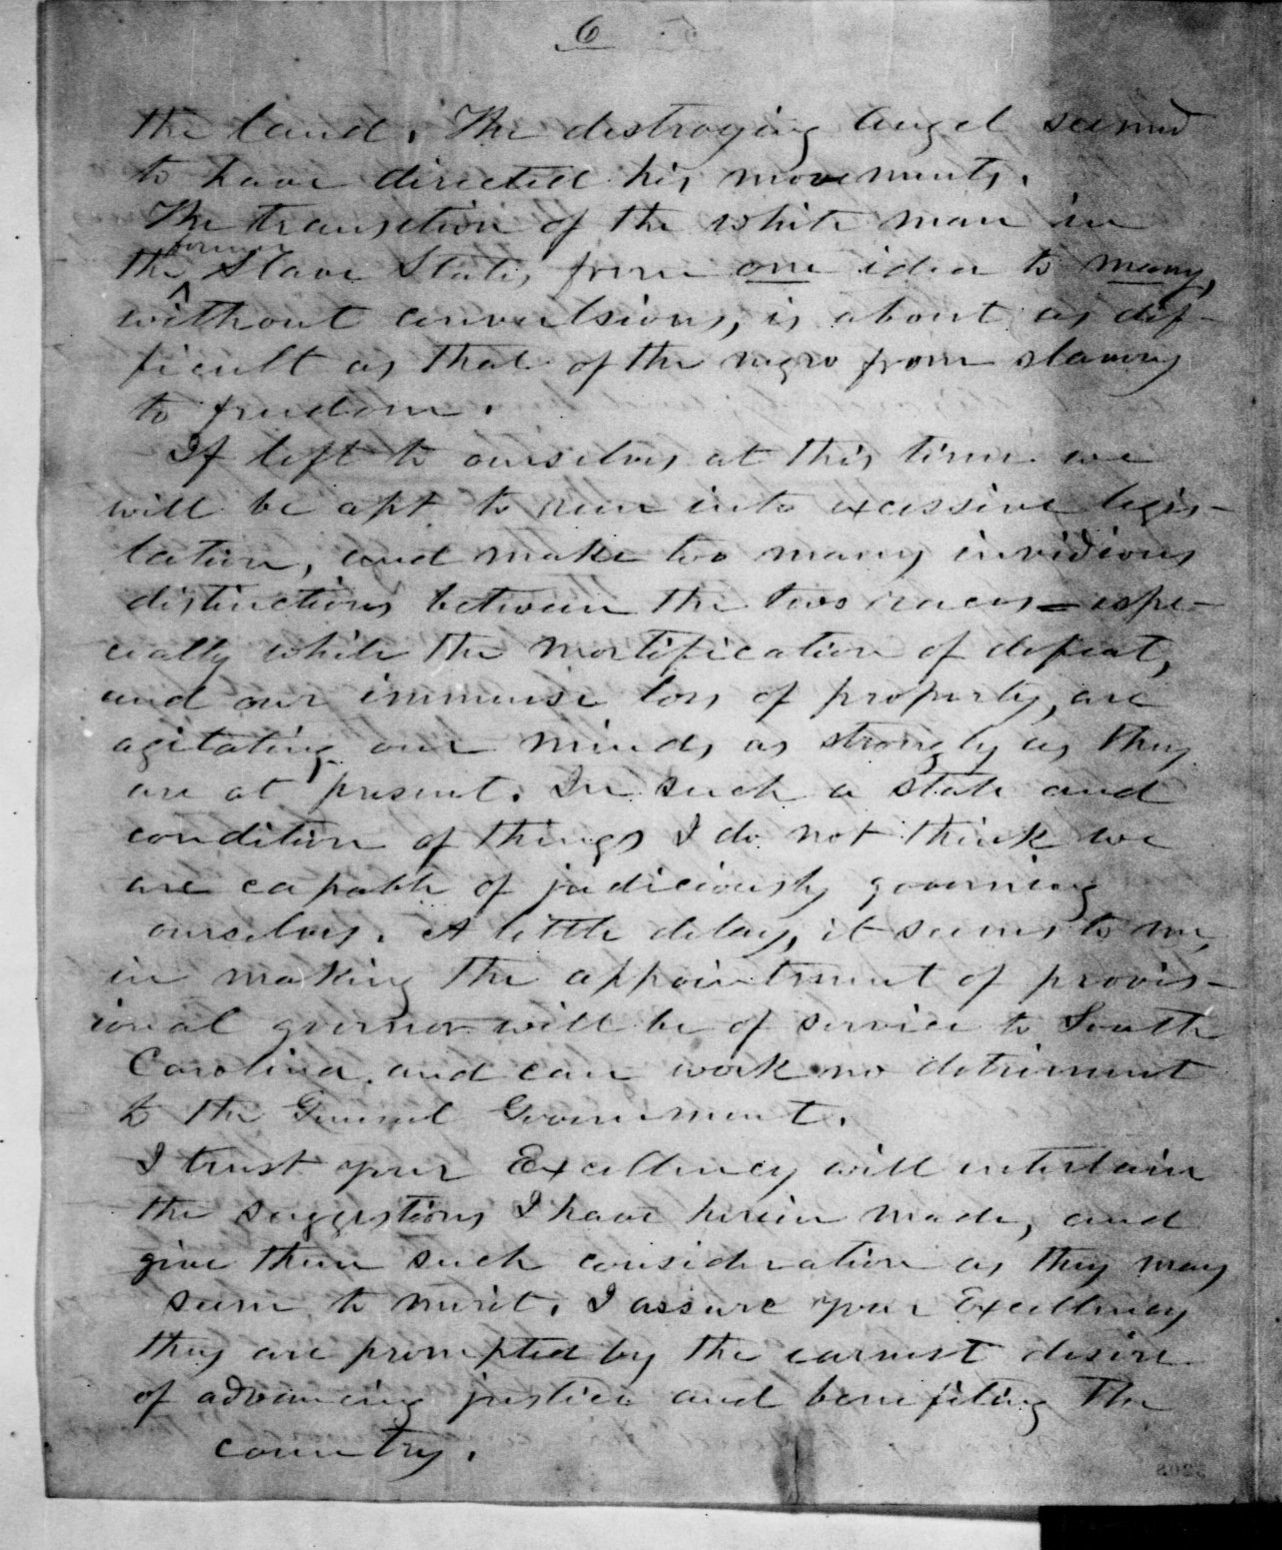 6
the land. The destroying Angel seemed
to have directed his movements.
The transition of the white man in
former
the Slave States, from one idea to many,
without convulsions, is about as dif-
ficult as that of the negro from slavery
to freedom.
If left to ourselves at this time we
will be apt to run into excessive legis-
lation, and make too many invidious
distinctions between the two races = espe-
cially while the mortification of defeat,
and our immense loss of property, are
agitating our minds as strongly as they
are at present. In such a state and
condition of things I do not think we
are capable of judiciously governing
ourselves. A little delay, it seems to me,
in making the appointment of provis-
ional governor will be of service to South
Carolina, and can work no detriment
to the General Government.
I trust your Excellency will entertain
the suggestions I have herein made, and
give them such consideration as they may
seem to merit. I assure your Excellency
they are prompted by the earnest desire
of advancing justice and benefiting the
country.